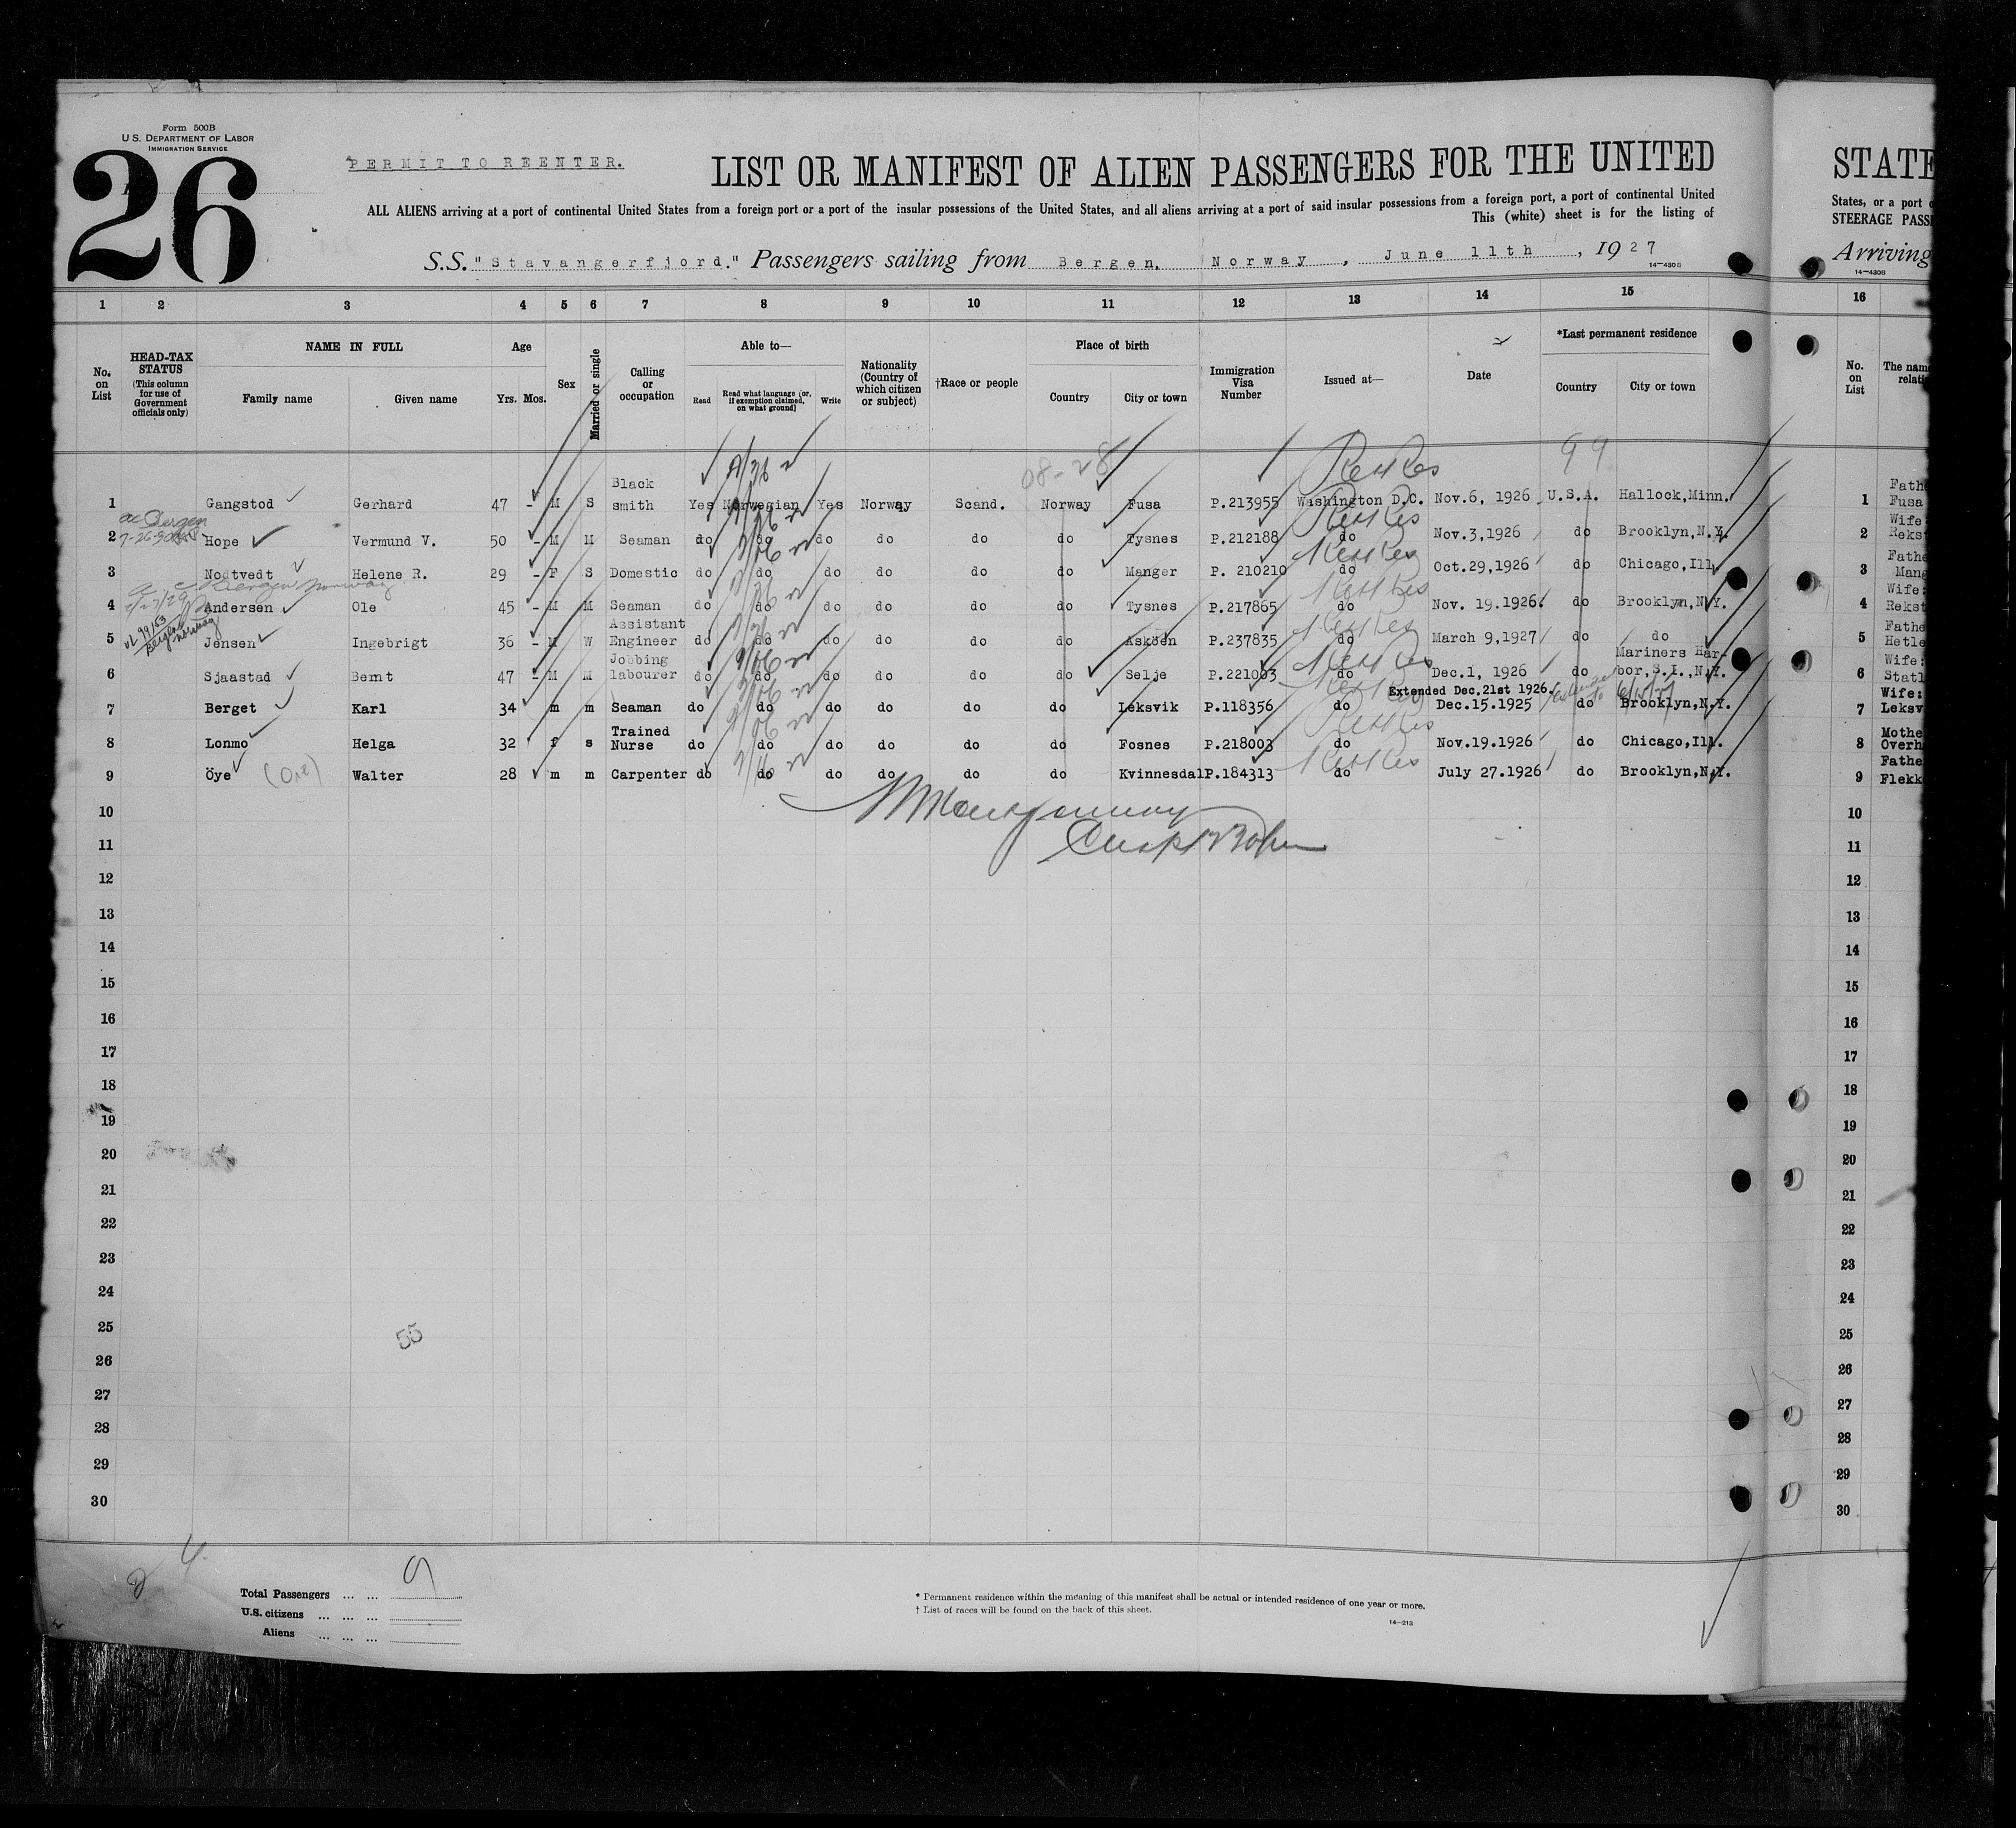 Form 500B
U.S. DEPARTMENT OF LABOR
IMMIGRATION SERVICE
26
PERMIT TO REENTER.
LIST OR MANIFEST OF ALIEN PASSENGERS FOR THE UNITED
STATE
ALL ALIENS arriving at a port of continental United States from a foreign port or a port of the insular possessions of the United States, and all aliens arriving at a port of said insular possessions from a foreign port, a port of continental United
States, or a port o
This (white) sheet is for the listing of
STEERAGE PASS
S.S. "Stavangerfjord." Passengers sailing from Bergen, Norway, June 11th, 1927
Arriving
14-4308
14-4308
1 2 3 4 5 6 7 8 9 10 11 12 13 14 15 16
No. on List
HEAD-TAX STATUS (This column for use of Government officials only)
NAME IN FULL
Family name Given name
Age
Yrs. Mos.
Sex
Married or single
Calling or occupation
Able to—
Read
Read what language (or, if exemption claimed, on what ground)
Write
Nationality (Country of which citizen or subject)
†Race or people
Place of birth
Country City or town
Immigration Visa Number
Issued at—
Date
*Last permanent residence
Country City or town
No. on List
The name
relati
08-28
99
1 Gangstod Gerhard 47 - M S Black smith Yes Norwegian Yes Norway Scand. Norway Fusa P.213955 Washington D.C. Nov.6, 1926 U.S.A. Hallock,Minn. 1 Fathe Fusa
Bergen
7-26-30
2 Hope Vermund V. 50 - M M Seaman do do do do do do Tysnes P.212188 do Nov.3,1926 do Brooklyn,N.Y. 2 Wife: Rekst
3 Nodtvedt Helene R. 29 - F S Domestic do do do do do do Manger P. 210210 do Oct.29,1926 do Chicago,Ill. 3 Fathe Mang
Bergen Norway
4 Andersen Ole 45 - M M Seaman do do do do do do Tysnes P.217865 do Nov. 19.1926. do Brooklyn,N.Y. 4 Wife: Rekst
Bergen Norway
5 Jensen Ingebrigt 36 - M W Assistant Engineer do do do do do do Asköen P.237835 do March 9,1927 do do 5 Fathe Hetle
6 Sjaastad Bernt 47 - M M Jobbing labourer do do do do do do Selje P.221003 do Dec.1, 1926 do Mariners Har- bor,S.I.,N.Y. 6 Wife: Statl
Extended Dec.21st 1926.
7 Berget Karl 34 m m Seaman do do do do do do Leksvik P.118356 do Dec.15.1925 do Brooklyn,N.Y. 7 Wife: Leksv
8 Lonmo Helga 32 f s Trained Nurse do do do do do do Fosnes P.218003 do Nov.19.1926 do Chicago,Ill. 8 Mothe Overh
9 Öye (Oie) Walter 28 m m Carpenter do do do do do do Kvinnesdal P.184313 do July 27.1926 do Brooklyn,N.Y. 9 Fathe Flekk
10 10
11 11
12 12
13 13
14 14
15 15
16 16
17 17
18 18
19 19
20 20
21 21
22 22
23 23
24 24
25 55 25
26 26
27 27
28 28
29 29
30 30
Total Passengers ... ... 9
U.S. citizens ... ... ...
Aliens ... ... ...
* Permanent residence within the meaning of this manifest shall be actual or intended residence of one year or more.
† List of races will be found on the back of this sheet.
14-213